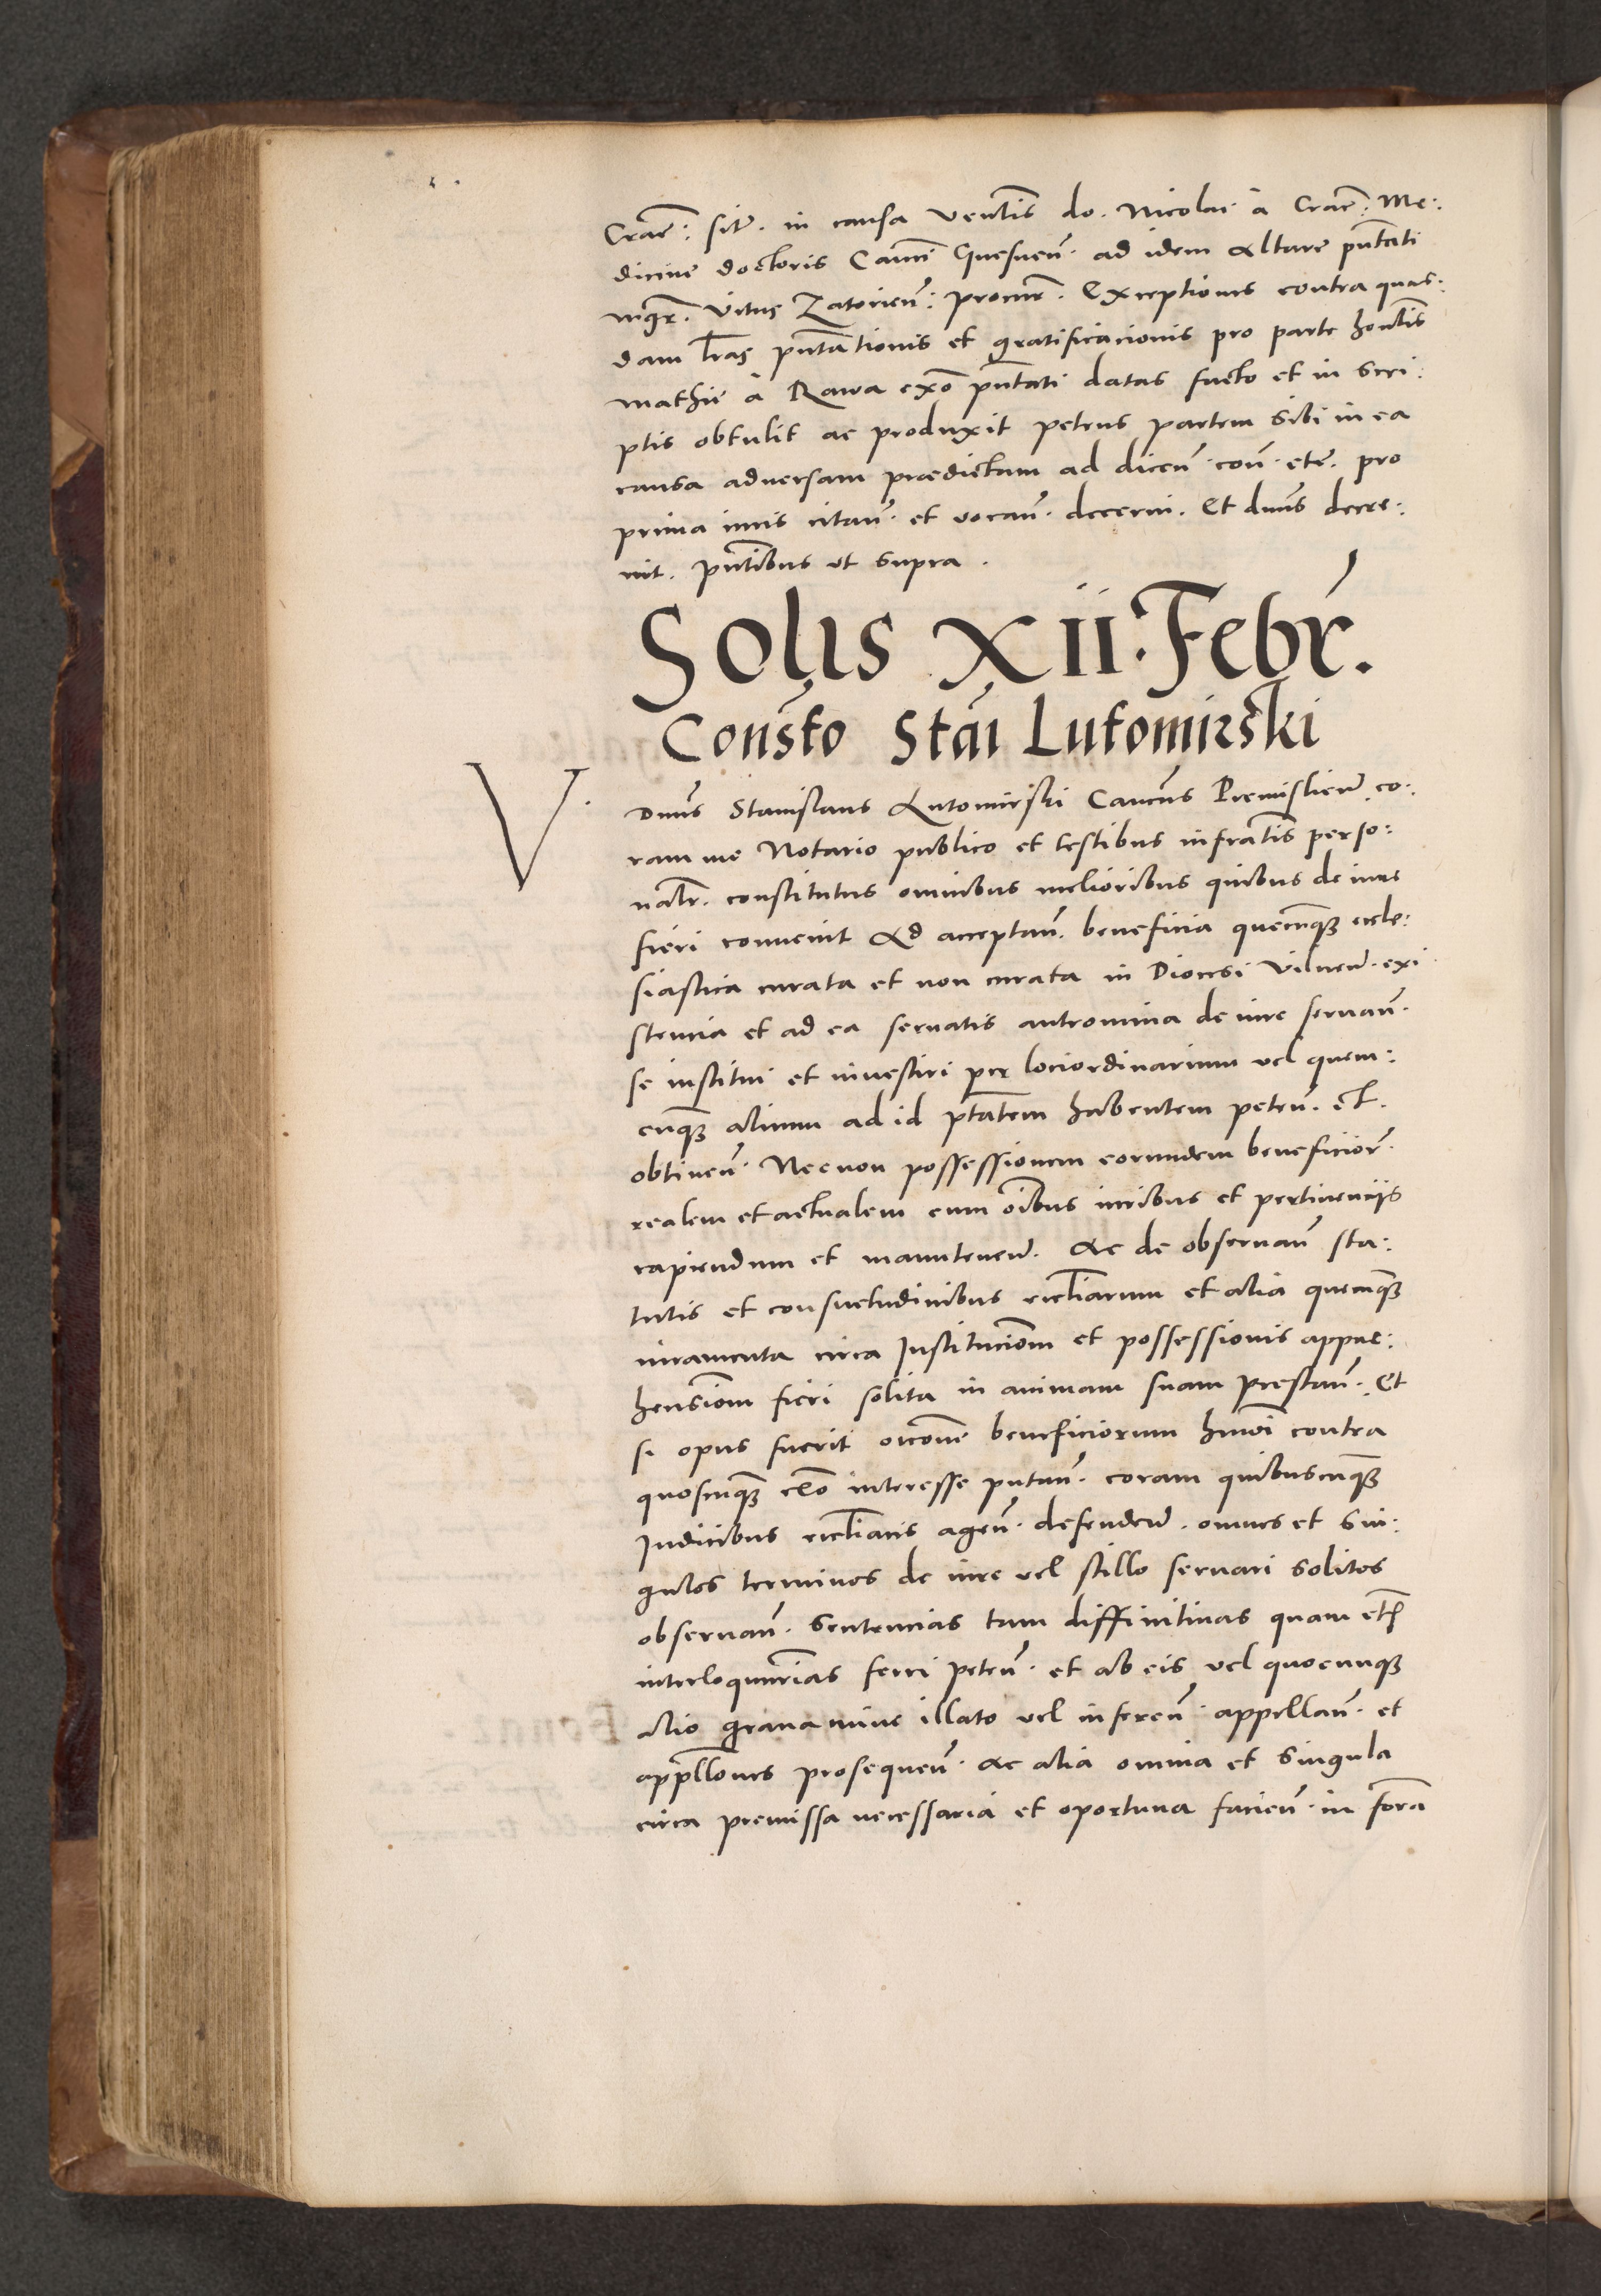 Cracē: sitē. in causa Ventis do. Nicolai à Cracē: Me:
dicine doctoris Canci Gnesnen̄. ad idem Altare pn̄tati
mgr̄. Vitus Zatorien̄: procur̄. Exceptiones contra quas:
dam l̄ras pn̄tationis et gratificacionis pro parte hon̄tis
Mathie à Rawa ex̄o pn̄tati datas facto et in scri:
ptis obtulit ac produxit petens partem sibi in ea
causa adversam prædictam ad dicen̄. con̄. etc̄. pro
prima iuris citan̄. et vocan̄. decerni. Et dn̄us decre:
uit. pn̄tibus ut supra.
Solis XII. Febr̄.
Consto Stai Lutomirski
V. Dn̄us Stanislaus Lutomirski Can̄cus Premislien̄. co:
ram me Notario publico et testibus infrātis perso:
nalr̄. constitutus omnibus melioribus quibus de iure
fieri convenit Ad acceptan̄. beneficia quecunqȝ eccle:
siastica curata et non curata in Diocesi Vilnen̄. exi
stencia et ad ea servatis autromina de iure servan̄.
se institui et investiri per lociordinarium vel quem:
cunqȝ alium ad id ptātem habentem peten̄. et.
obtinen̄. Necnon possessionem eorundem beneficior̄.
realem et actualem cum oībus iuribus et pertinenciis
capiendum et manutenen̄. Ac de observan̄ sta:
tutis et consuetudinibus eccl̄iarum et alia quecunqȝ
iuramenta circa Institucīom et possessionis appre:
hensīom fieri solita in animam suam prestan̄. Et
si opus fuerit oīcōne beneficiorum hmōi contra
quoscunqȝ cl̄o interesse putan̄. coram quibuscunqȝ
Iudicibus eccl̄iacis agen̄. defenden̄. omnes et sin:
gulos terminos de iure vel stillo servari solitos
observan̄. Sentencias tam diffinitivas quam et̄
interloqutorias ferri peten̄. et ab eis vel quocunqȝ
alio gravamine illato vel inferen̄. appellan̄. et
appll̄ones prosequen̄. Ac alia omnia et singula
circa premissa necessaria et oportuna facien̄. in fōra